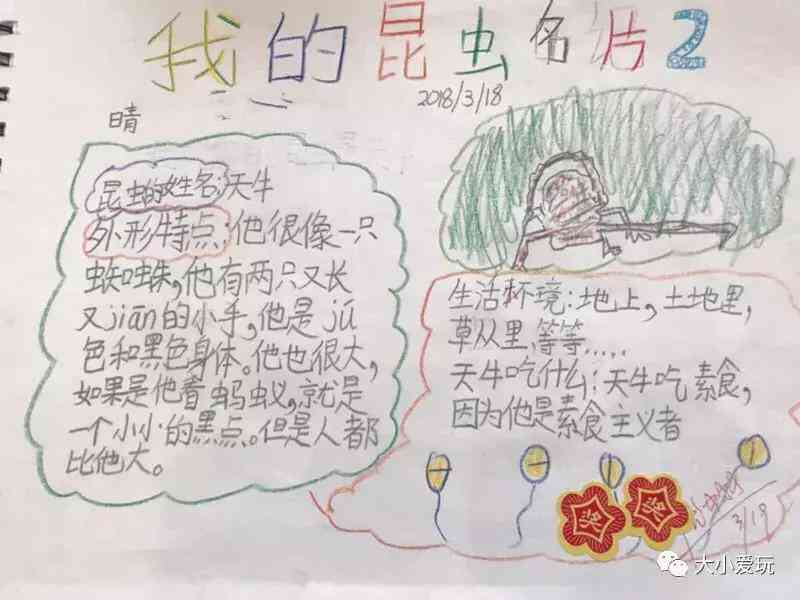 我的昆虫名片2
2018/3/18
晴
昆虫的姓名:天牛
外形特点:他很像一只
蜘蛛,他有两只又长
又jiān的小手,他是jú
色和黑色身体。他也很大,
如果是他看蚂蚁,就是
一个小小的黑点。但是人都
比他大。
生活环境:地上,土地里,
草从里,等等.....
天牛吃什么:天牛吃素食,
因为他是素食主义者
3/19
大小爱玩